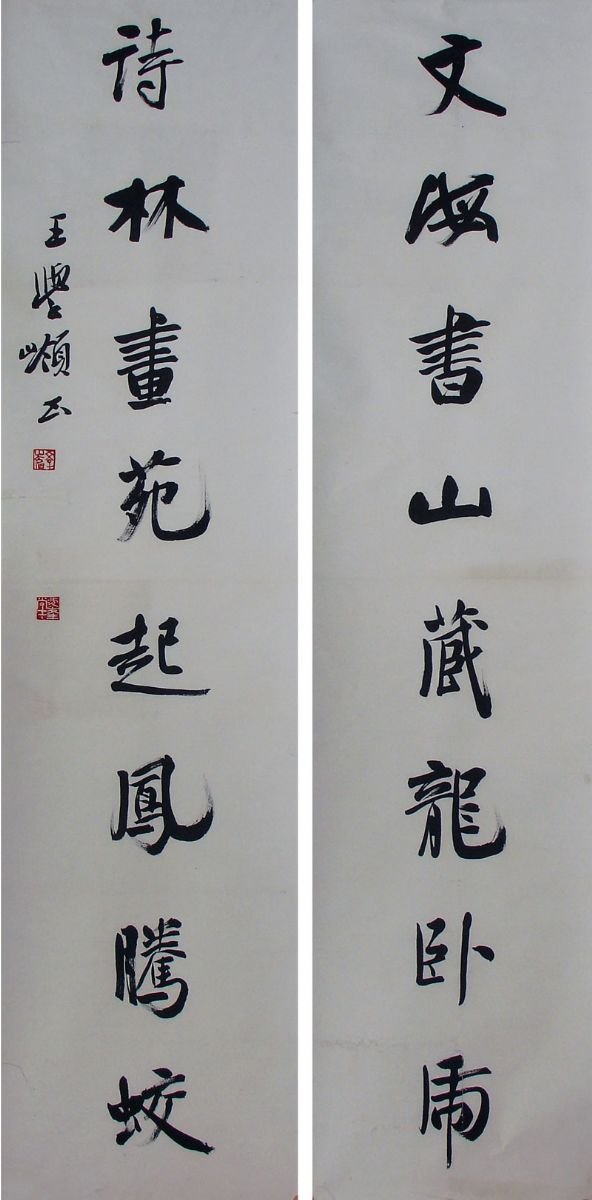 文海書山藏龍卧虎
詩林畫苑起鳳騰蛟
王學嶺書